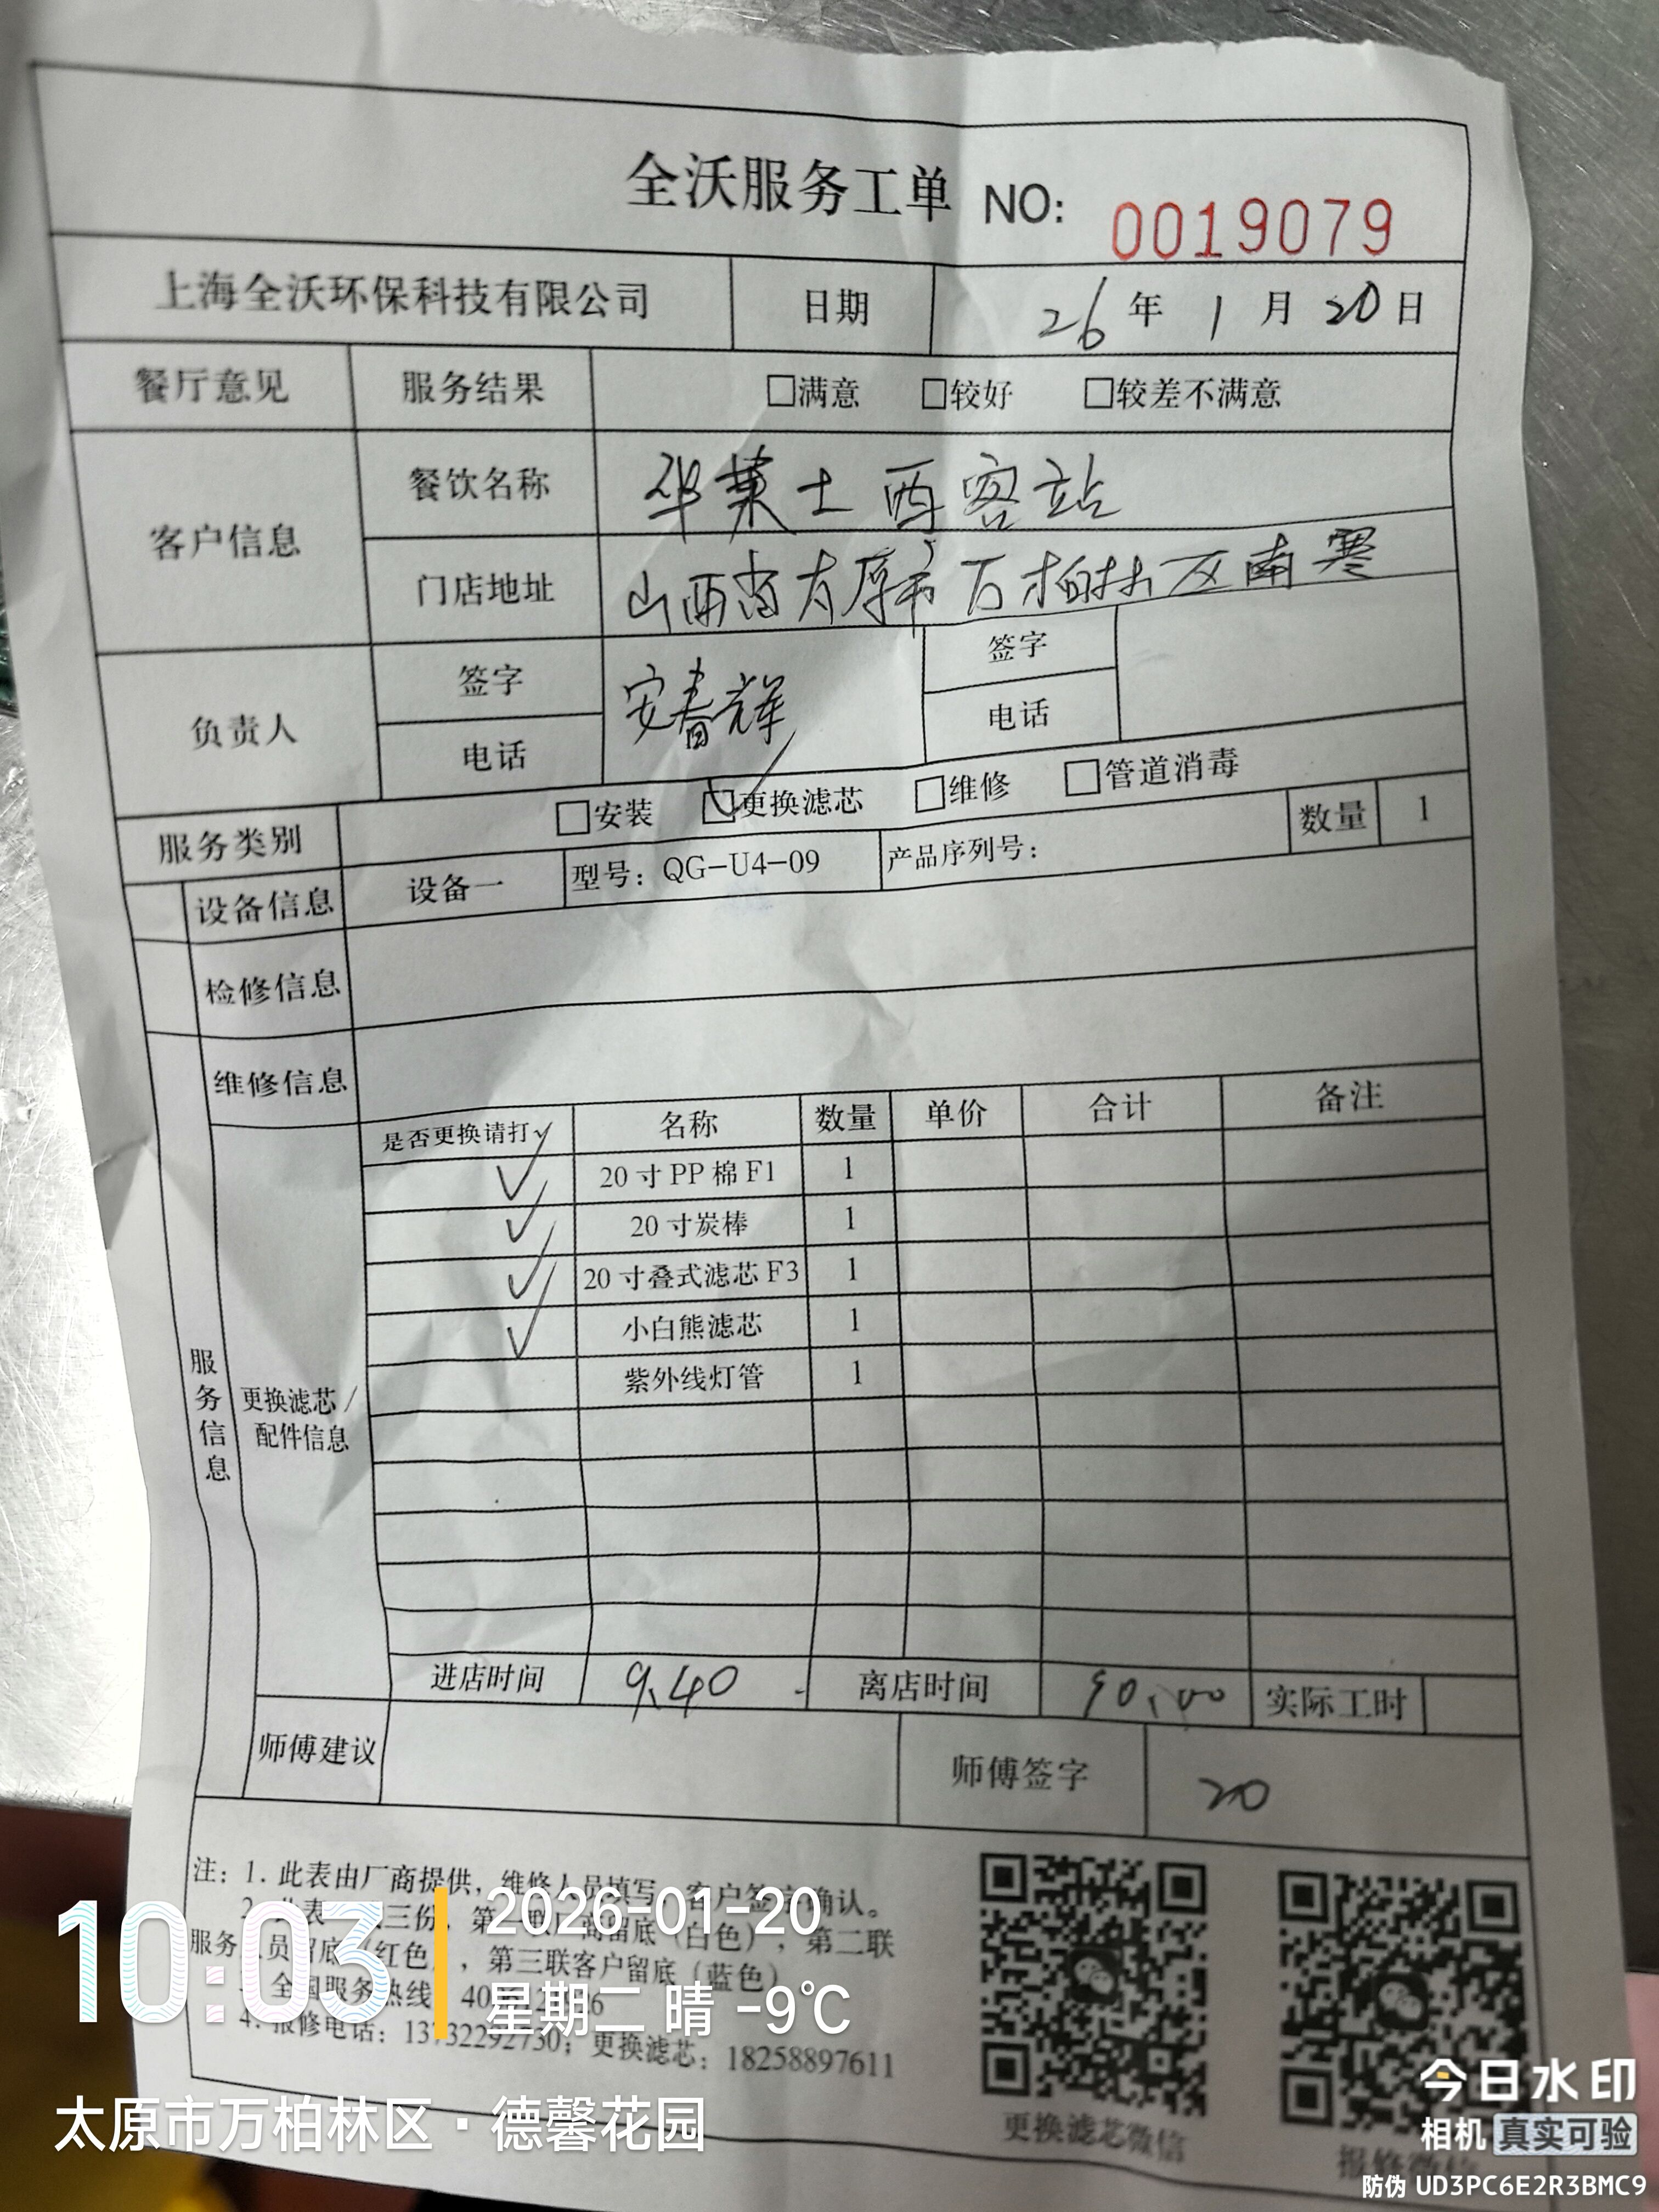 全沃服务工单 NO: 0019079
上海全沃环保科技有限公司 日期 26 年 1 月 20 日
餐厅意见 服务结果 □满意 □较好 □较差不满意
客户信息 餐饮名称 华莱士西客站
门店地址 山西省太原市万柏林区南寒
负责人 签字 安春辉 签字
电话 电话
服务类别 □安装 ☑更换滤芯 □维修 □管道消毒
设备信息 设备一 型号: QG-U4-09 产品序列号: 数量 1
检修信息
维修信息
服务信息
更换滤芯/
配件信息
是否更换请打✓ 名称 数量 单价 合计 备注
✓ 20寸PP棉F1 1
✓ 20寸炭棒 1
✓ 20寸叠式滤芯F3 1
✓ 小白熊滤芯 1
紫外线灯管 1
进店时间 9.40 离店时间 实际工时
师傅建议 师傅签字 20
注: 1. 此表由厂商提供, 维修人员填写, 客户签字确认。
三份, 第一联厂商留底(白色), 第二联
服务人员留底(红色), 第三联客户留底(蓝色)
全国服务热线
4. 报修电话: 13732292730; 更换滤芯: 18258897611
更换滤芯微信
报修微信
10:03
2026-01-20
星期二 晴 -9℃
太原市万柏林区·德馨花园
今日水印
相机 真实可验
防伪 UD3PC6E2R3BMC9